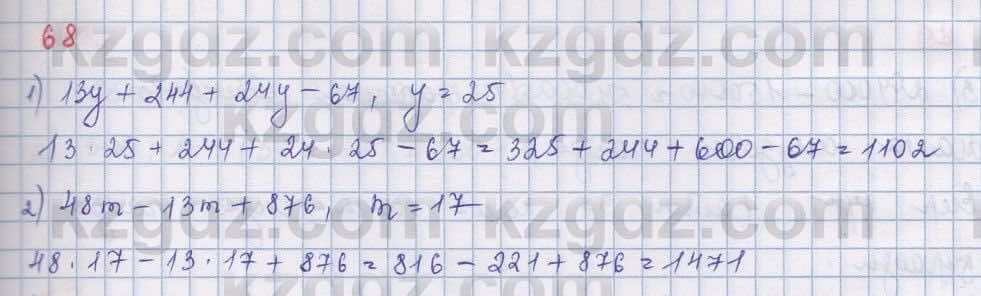 68
1) 13y + 244 + 24y - 67, y = 25
13 · 25 + 244 + 24 · 25 - 67 = 325 + 244 + 600 - 67 = 1102
2) 48m - 13m + 876, m = 17
48 · 17 - 13 · 17 + 876 = 816 - 221 + 876 = 1471
kzgdz.com kzgdz.com
kzgdz.com kzgdz.com
kzgdz.com kzgdz.com